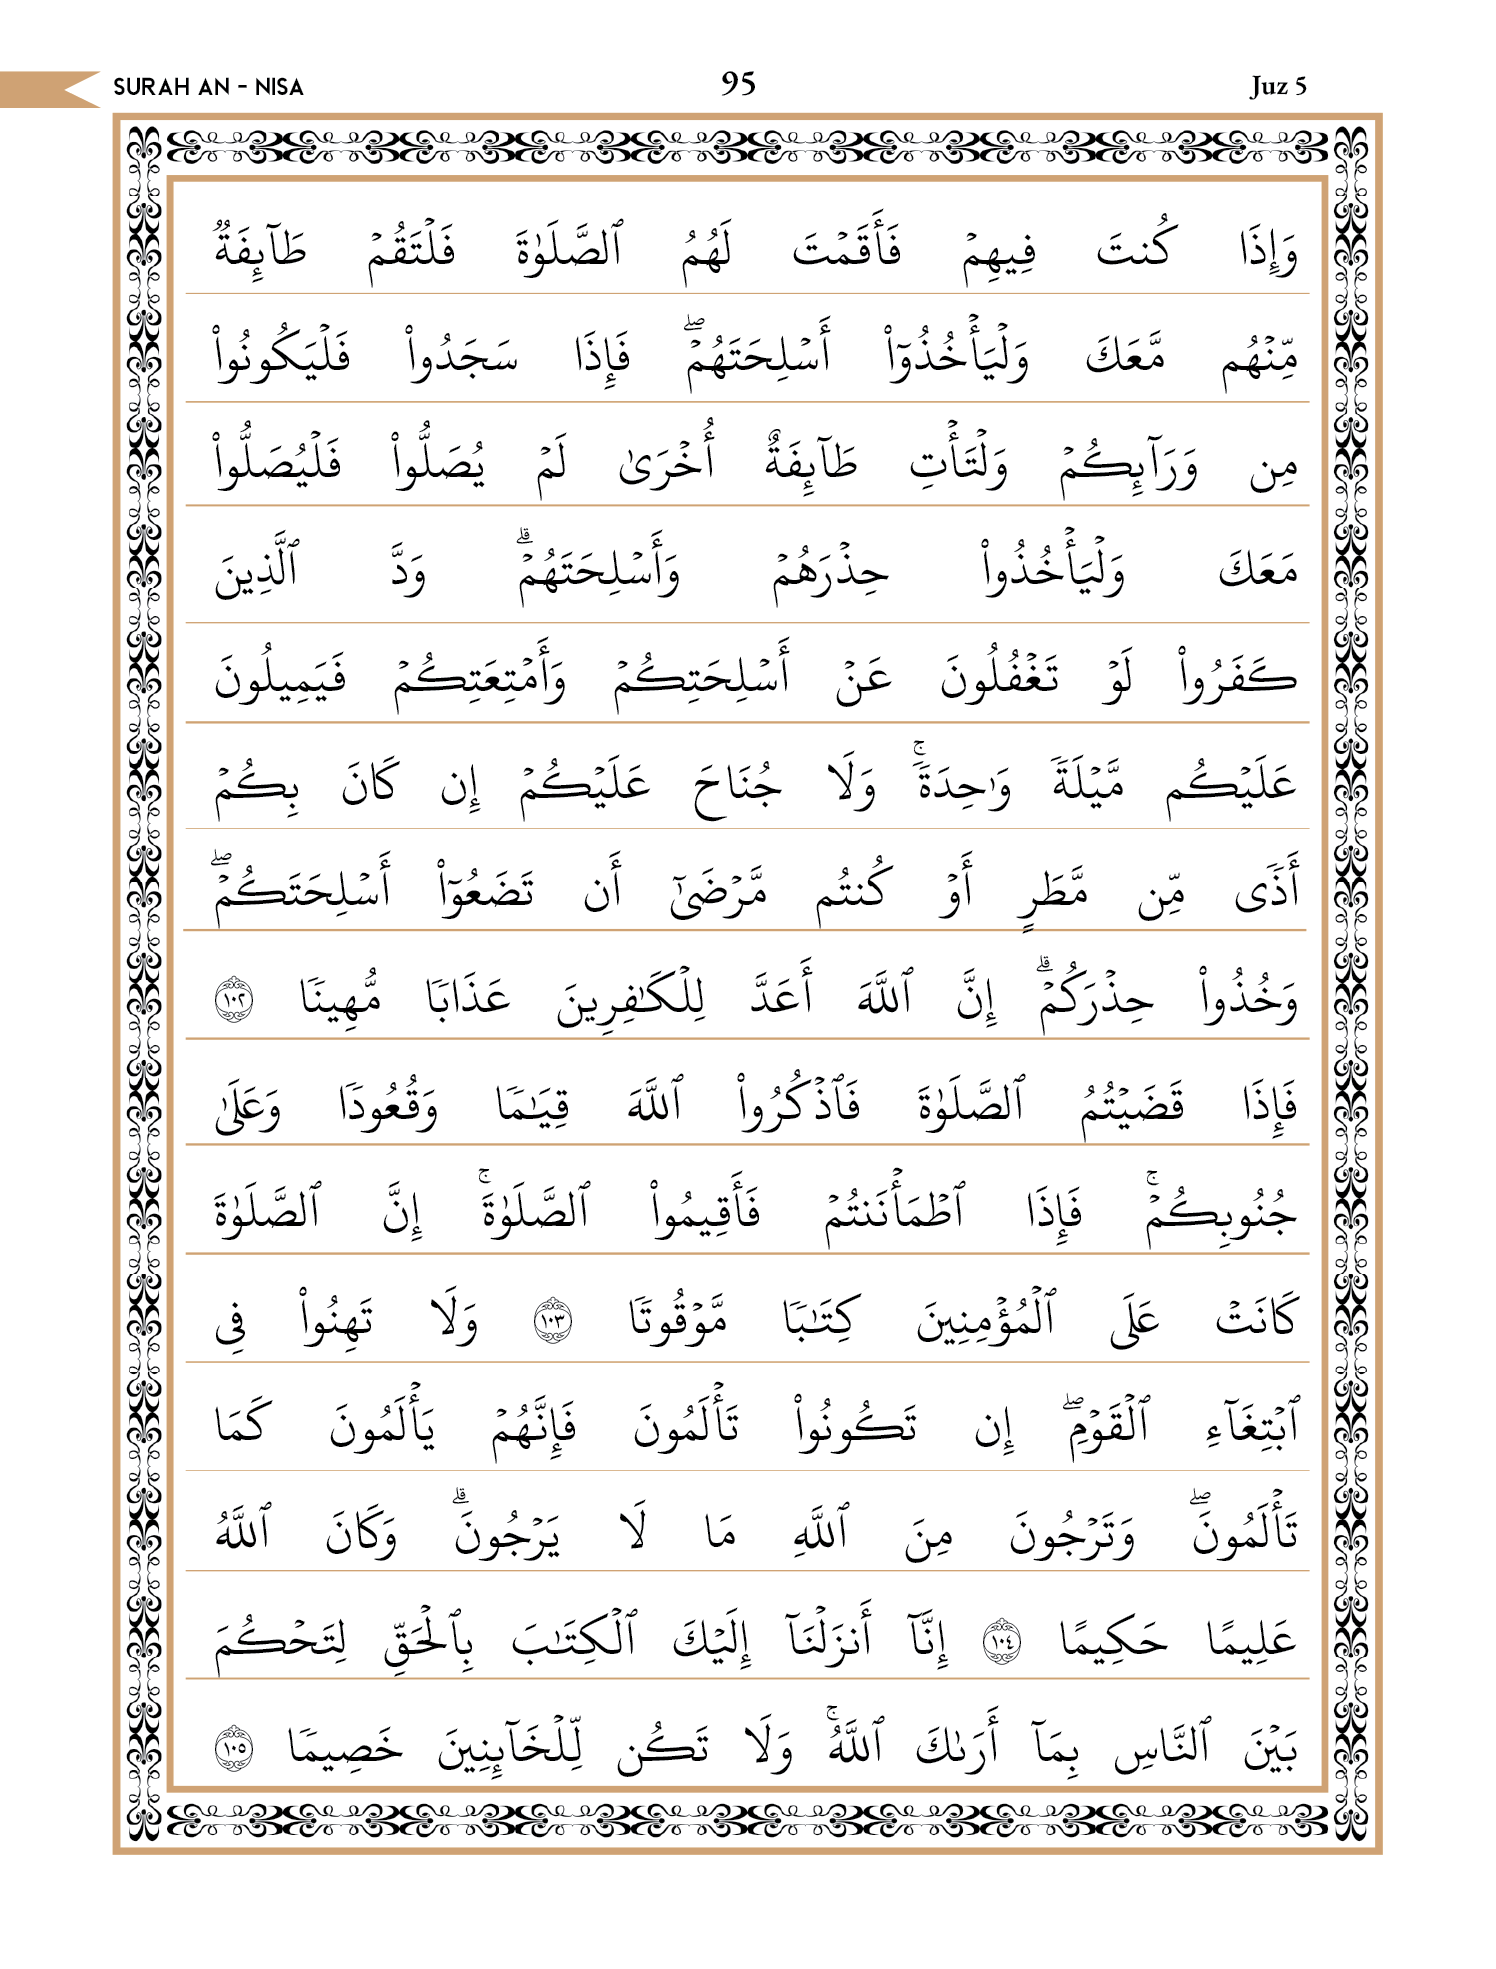 SURAH AN - NISA 95 Juz 5
وَإِذَا كُنتَ فِيهِمۡ فَأَقَمۡتَ لَهُمُ ٱلصَّلَوٰةَ فَلۡتَقُمۡ طَآئِفَةٞ
مِّنۡهُم مَّعَكَ وَلۡيَأۡخُذُوٓاْ أَسۡلِحَتَهُمۡۖ فَإِذَا سَجَدُواْ فَلۡيَكُونُواْ
مِن وَرَآئِكُمۡ وَلۡتَأۡتِ طَآئِفَةٌ أُخۡرَىٰ لَمۡ يُصَلُّواْ فَلۡيُصَلُّواْ
مَعَكَ وَلۡيَأۡخُذُواْ حِذۡرَهُمۡ وَأَسۡلِحَتَهُمۡۗ وَدَّ ٱلَّذِينَ
كَفَرُواْ لَوۡ تَغۡفُلُونَ عَنۡ أَسۡلِحَتِكُمۡ وَأَمۡتِعَتِكُمۡ فَيَمِيلُونَ
عَلَيۡكُم مَّيۡلَةٗ وَٰحِدَةٗۚ وَلَا جُنَاحَ عَلَيۡكُمۡ إِن كَانَ بِكُمۡ
أَذٗى مِّن مَّطَرٍ أَوۡ كُنتُم مَّرۡضَىٰٓ أَن تَضَعُوٓاْ أَسۡلِحَتَكُمۡۖ
وَخُذُواْ حِذۡرَكُمۡۗ إِنَّ ٱللَّهَ أَعَدَّ لِلۡكَٰفِرِينَ عَذَابٗا مُّهِينٗا ١٠٢
فَإِذَا قَضَيۡتُمُ ٱلصَّلَوٰةَ فَٱذۡكُرُواْ ٱللَّهَ قِيَٰمٗا وَقُعُودٗا وَعَلَىٰ
جُنُوبِكُمۡۚ فَإِذَا ٱطۡمَأۡنَنتُمۡ فَأَقِيمُواْ ٱلصَّلَوٰةَۚ إِنَّ ٱلصَّلَوٰةَ
كَانَتۡ عَلَى ٱلۡمُؤۡمِنِينَ كِتَٰبٗا مَّوۡقُوتٗا ١٠٣ وَلَا تَهِنُواْ فِي
ٱبۡتِغَآءِ ٱلۡقَوۡمِۖ إِن تَكُونُواْ تَأۡلَمُونَ فَإِنَّهُمۡ يَأۡلَمُونَ كَمَا
تَأۡلَمُونَۖ وَتَرۡجُونَ مِنَ ٱللَّهِ مَا لَا يَرۡجُونَۗ وَكَانَ ٱللَّهُ
عَلِيمًا حَكِيمًا ١٠٤ إِنَّآ أَنزَلۡنَآ إِلَيۡكَ ٱلۡكِتَٰبَ بِٱلۡحَقِّ لِتَحۡكُمَ
بَيۡنَ ٱلنَّاسِ بِمَآ أَرَىٰكَ ٱللَّهُۚ وَلَا تَكُن لِّلۡخَآئِنِينَ خَصِيمٗا ١٠٥